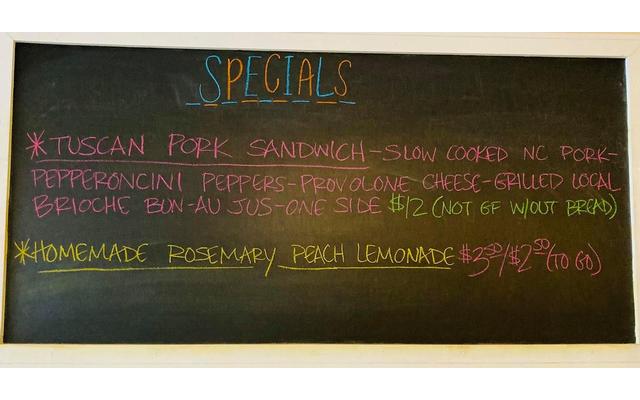 SPECIALS
*TUSCAN PORK SANDWICH-SLOW COOKED NC PORK-
PEPPERONCINI PEPPERS-PROVOLONE CHEESE-GRILLED LOCAL
BRIOCHE BUN-AU JUS-ONE SIDE $12 (NOT GF W/OUT BREAD)
*HOMEMADE ROSEMARY PEACH LEMONADE $3.50/$2.50 (TO GO)